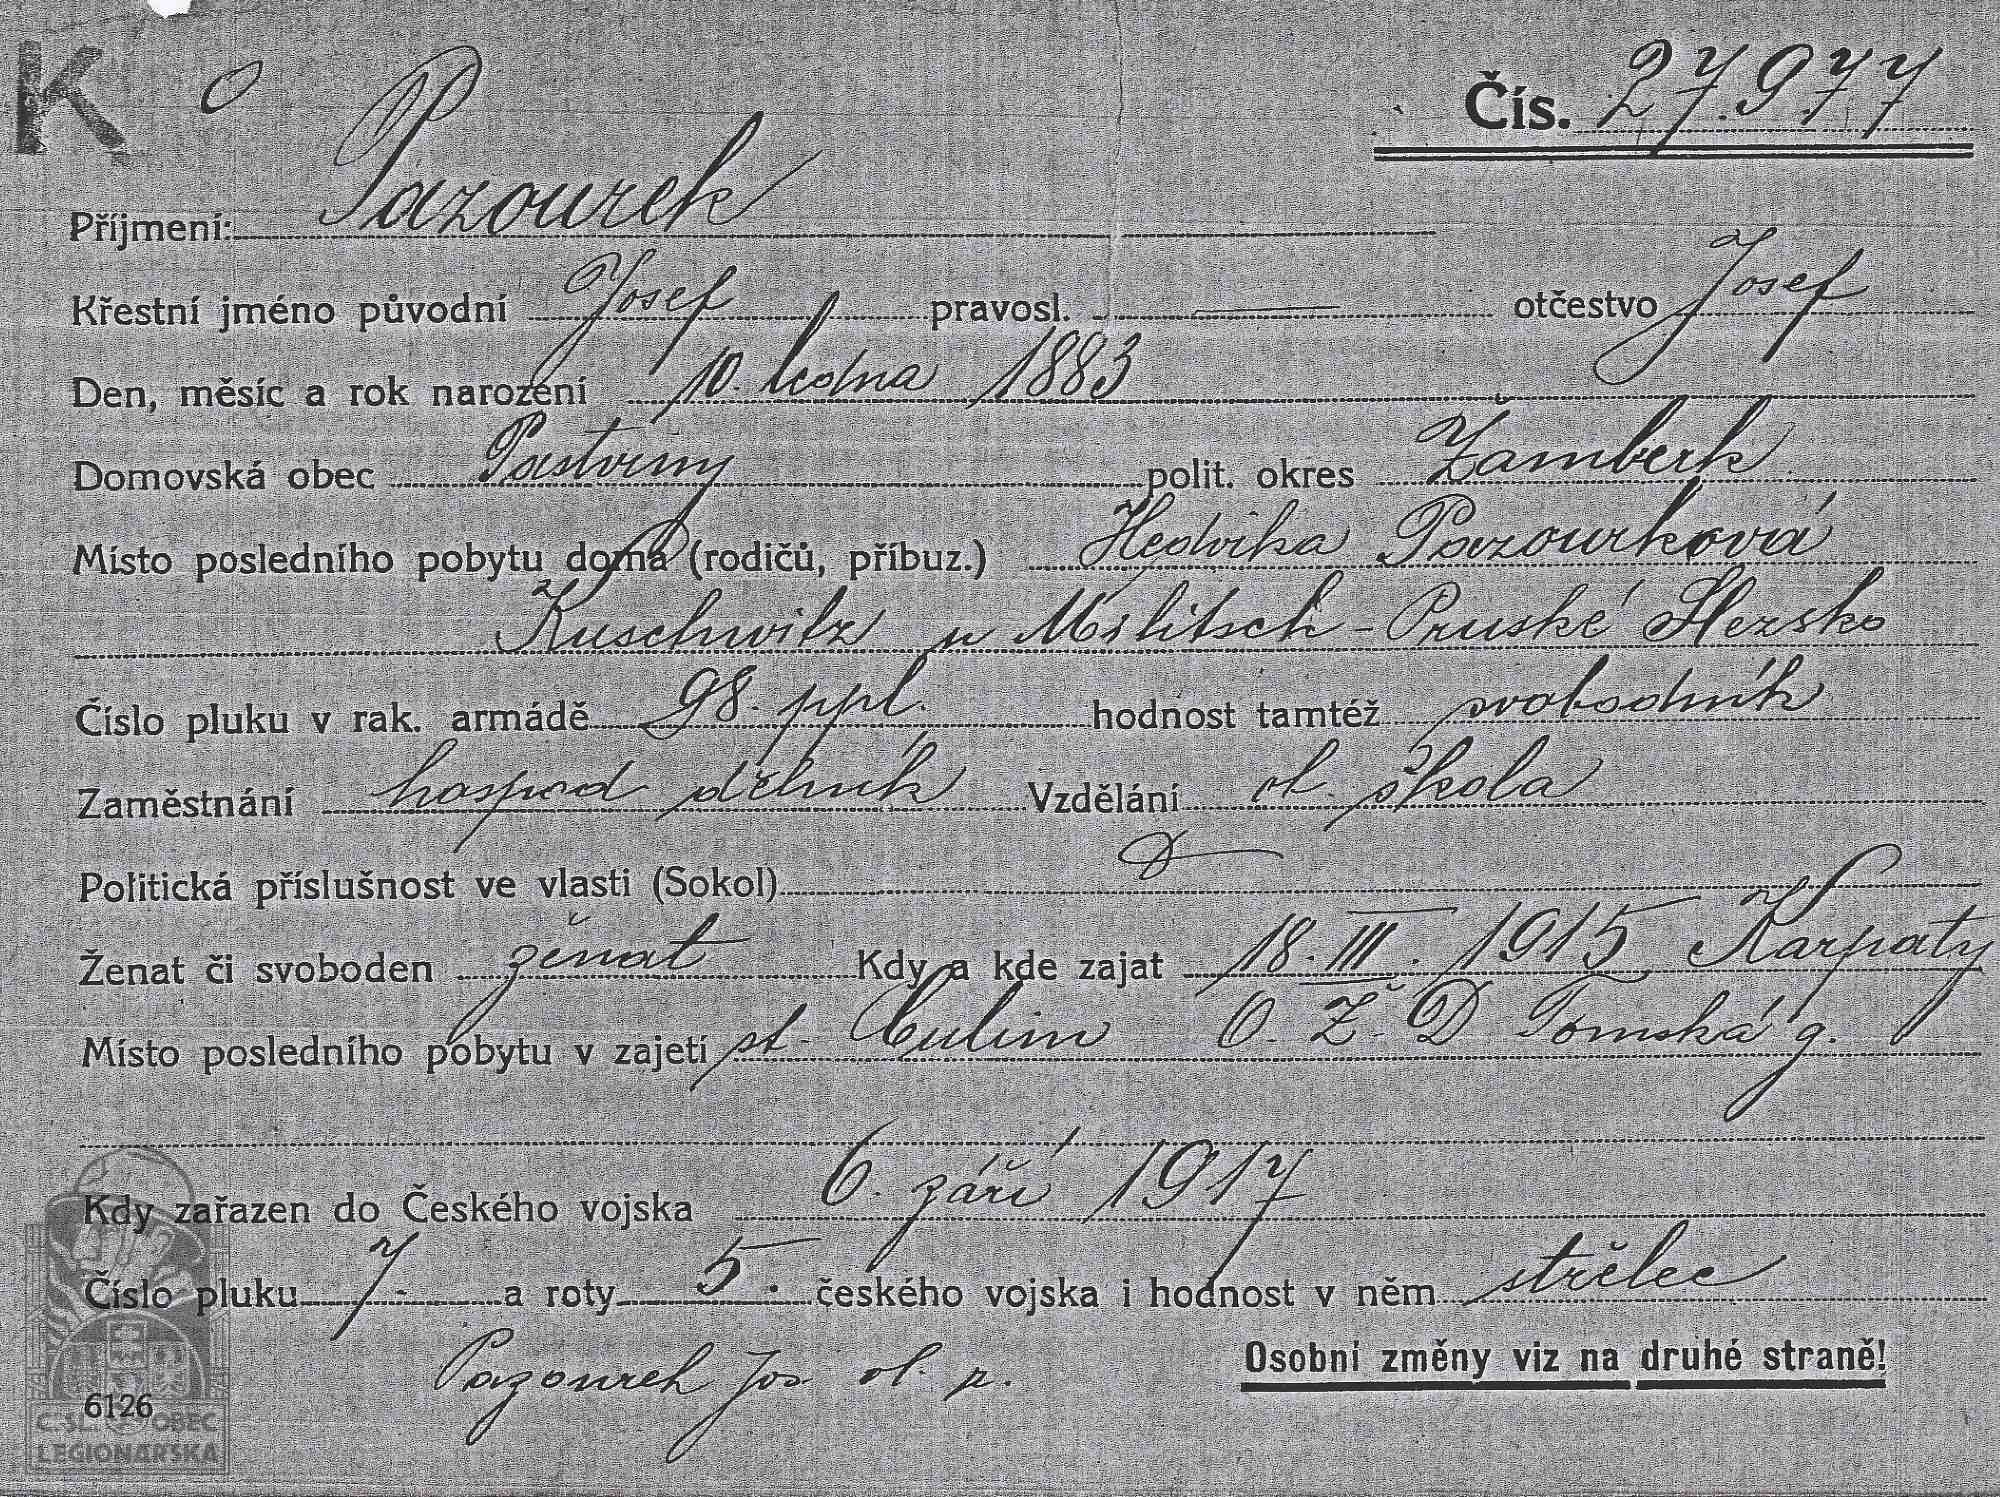 K O Čís. 27.977
Příjmení: Pazourek
Křestní jméno původní Josef pravosl. — otčestvo Josef
Den, měsíc a rok narození 10. ledna 1883
Domovská obec Pastviny polit. okres Žamberk
Místo posledního pobytu doma (rodičů, příbuz.) Hedvika Pazourková
Kuschwitz u Militsch - Pruské Slezsko
Číslo pluku v rak. armádě 98. ppl. hodnost tamtéž svobodník
Zaměstnání hospod. dělník Vzdělání ob. škola
Politická příslušnost ve vlasti (Sokol)
Ženat či svoboden ženat Kdy a kde zajat 18. III. 1915 Karpaty
Místo posledního pobytu v zajetí st. Culim O. Ž. D Tomská g.
Kdy zařazen do Českého vojska 6. září 1917
Číslo pluku 7. a roty 5. českého vojska i hodnost v něm střelec
Pazourek Jos. vl. r.
Osobní změny viz na druhé straně!
6126
Č.SL. OBEC
LEGIONÁŘSKÁ